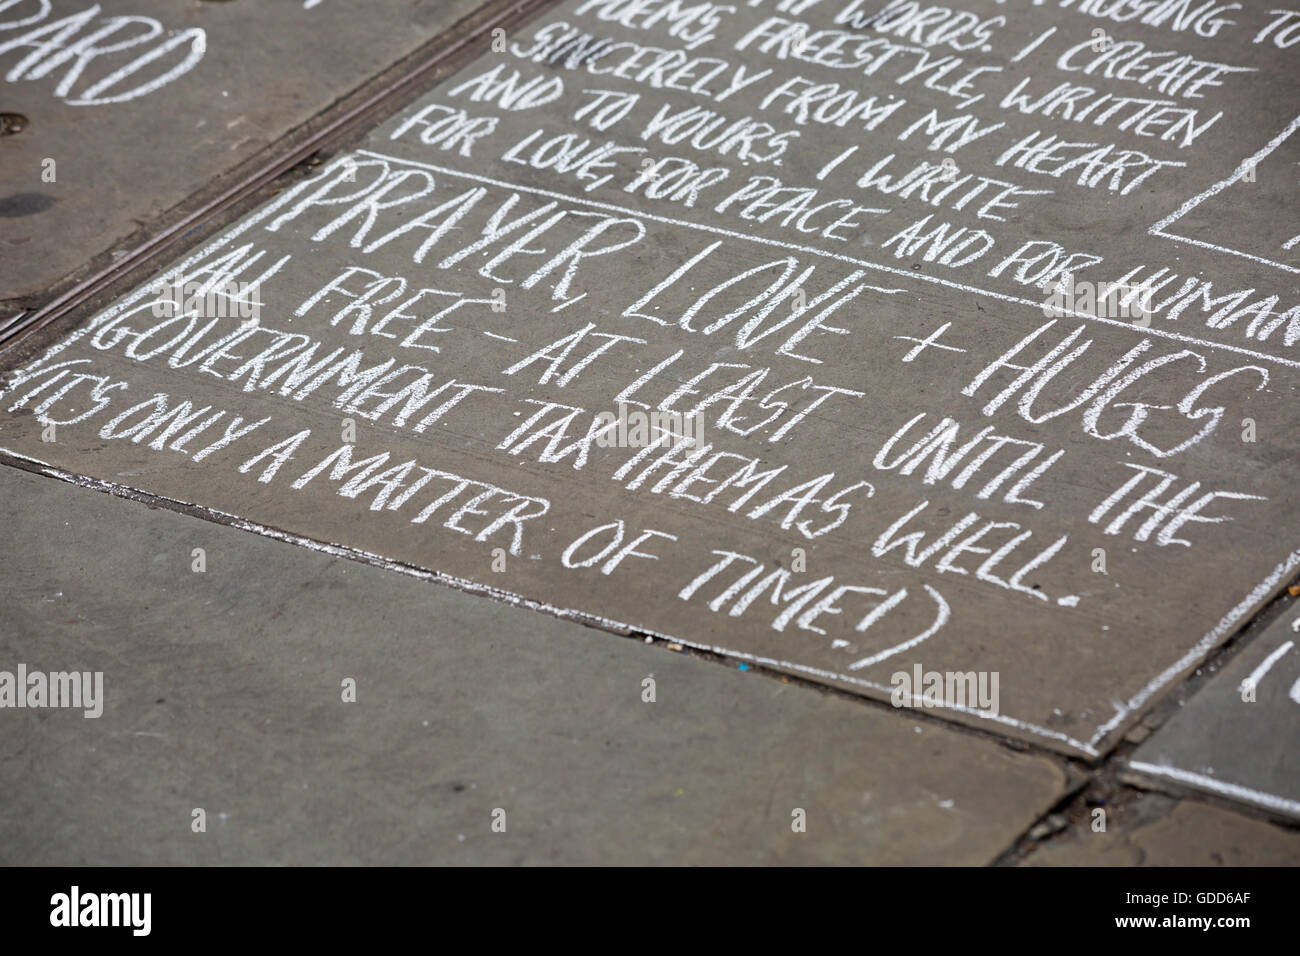 DARD
MY WORDS. I CREATE
POEMS, FREESTYLE, WRITTEN
SINCERELY FROM MY HEART
AND TO YOURS. I WRITE
FOR LOVE, FOR PEACE AND FOR HUMAN
PRAYER LOVE + HUGS
ALL FREE - AT LEAST UNTIL THE
GOVERNMENT TAX THEM AS WELL.
(IT'S ONLY A MATTER OF TIME!)
alamy
Image ID: GDD6AF
www.alamy.com